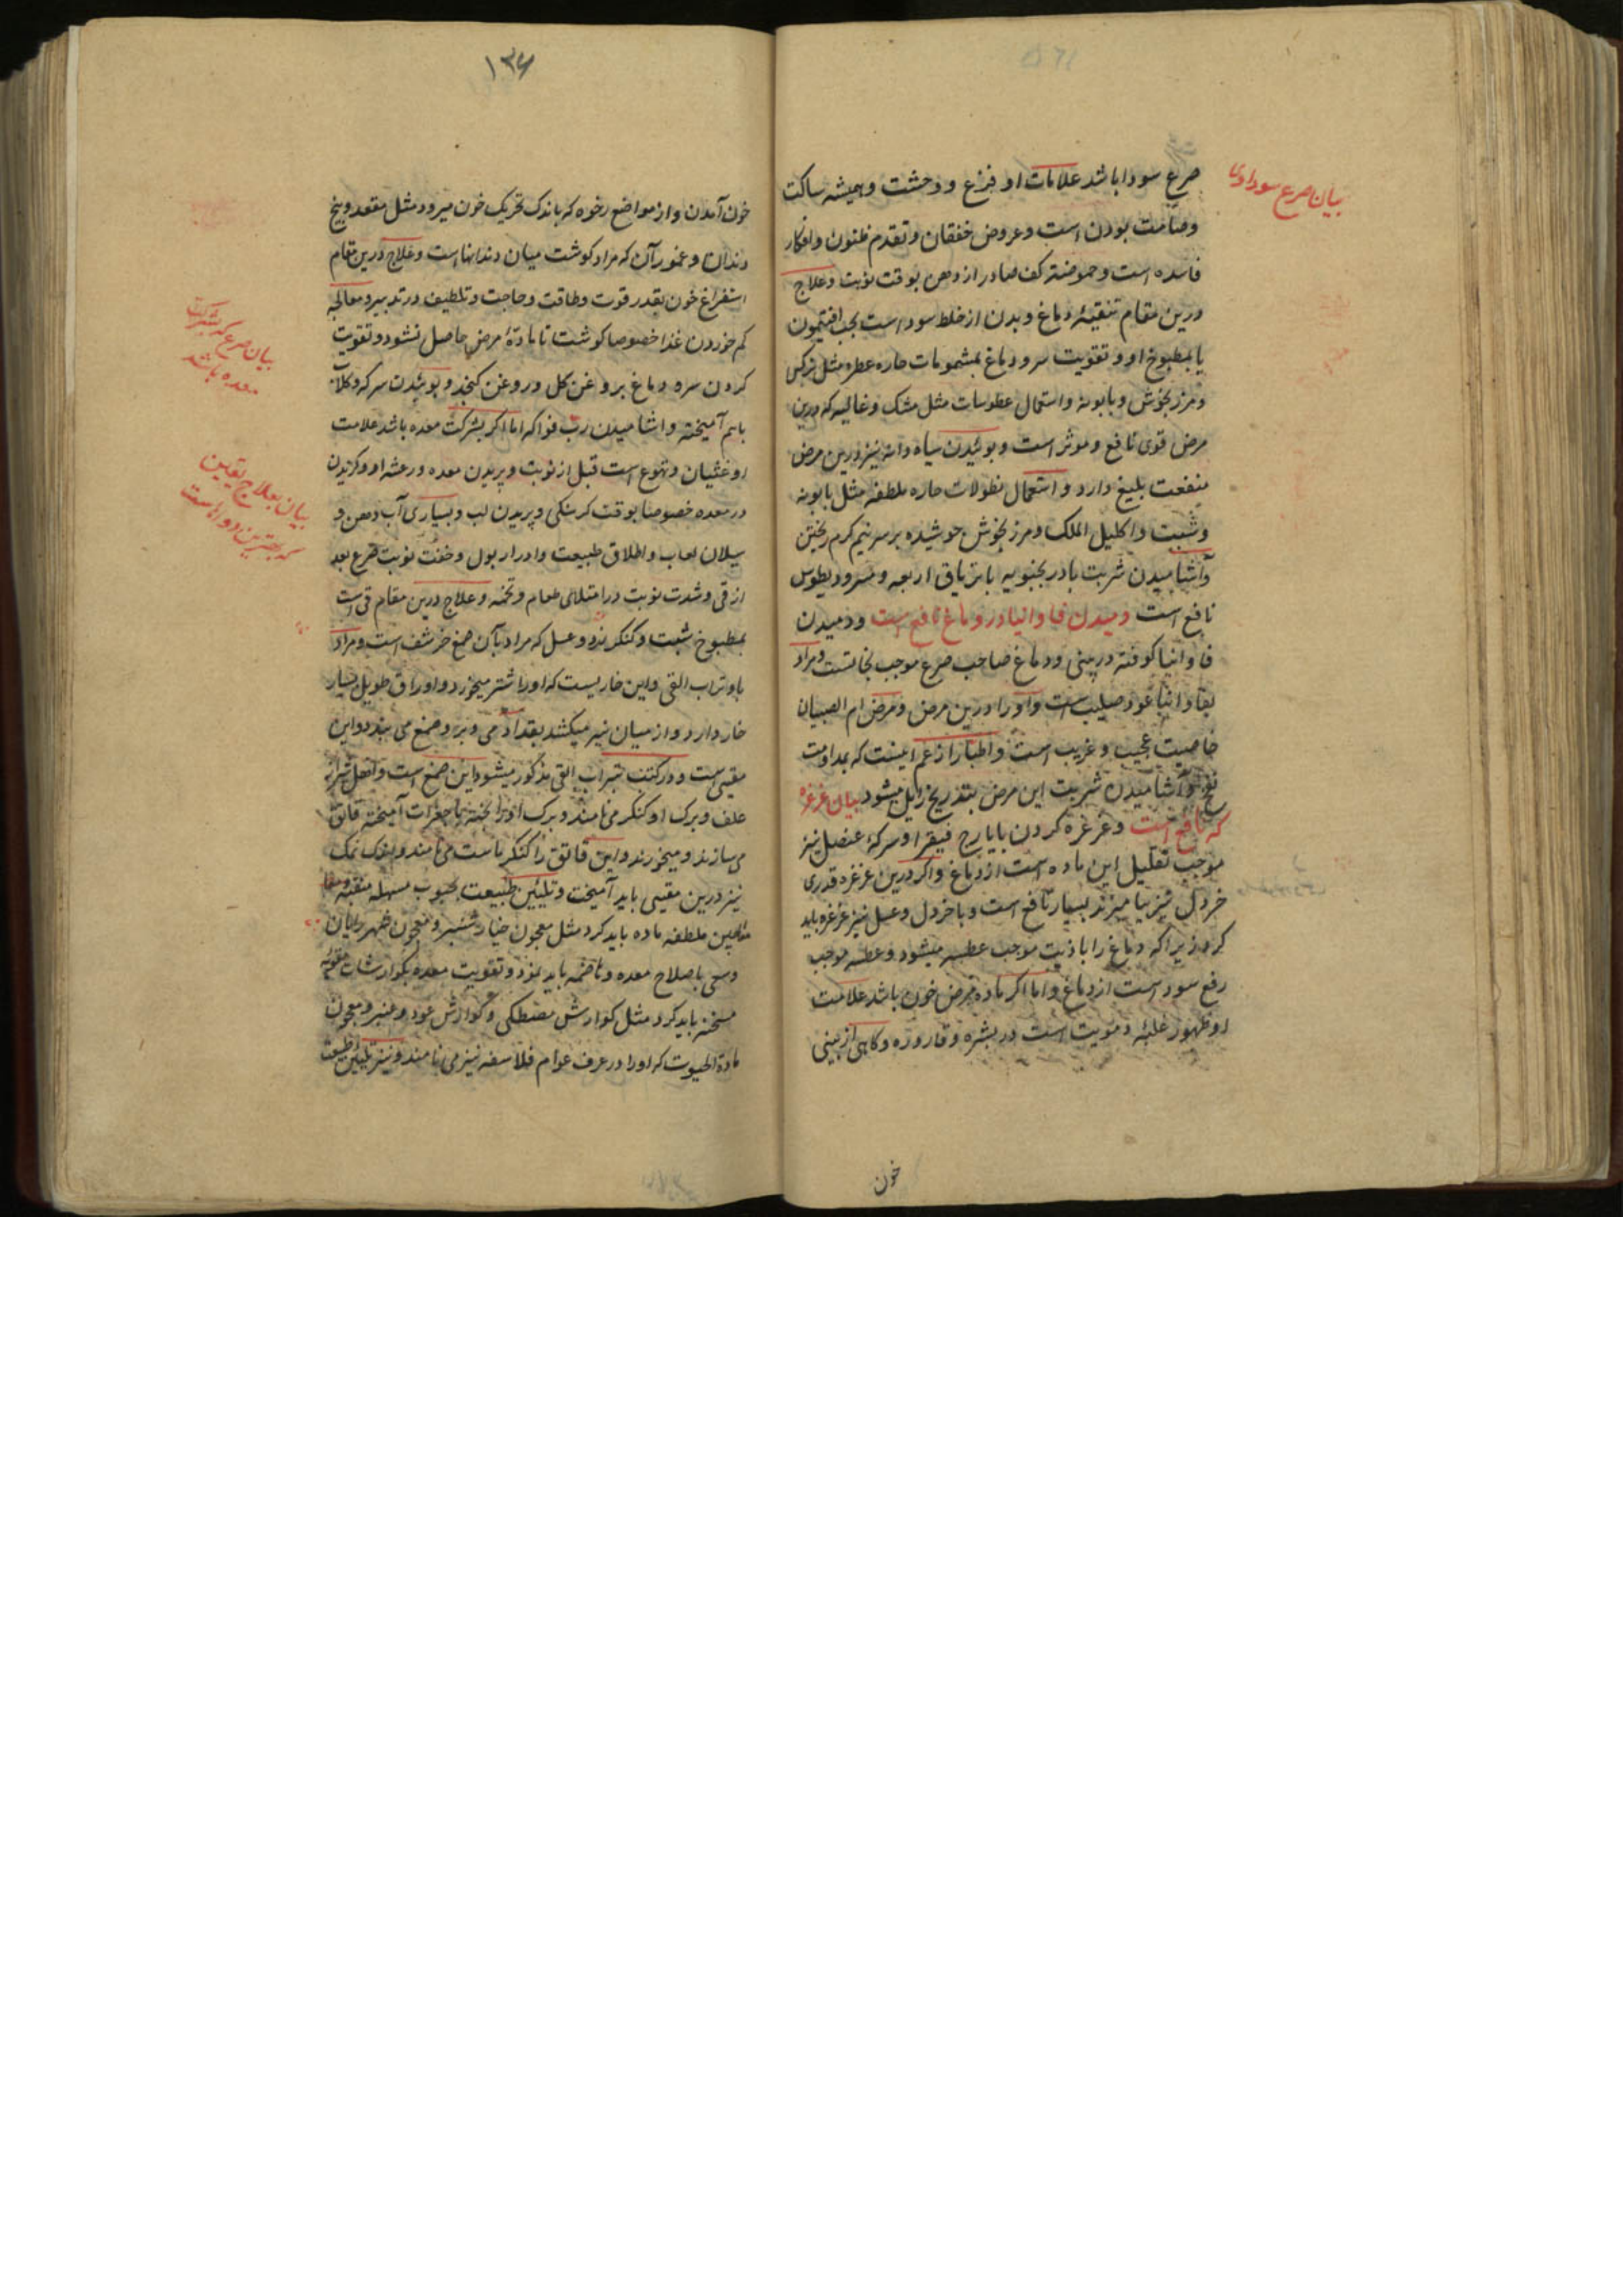 بیان صرع سوداوی
صرع سودا باشد علامات او فزع و وحشت و همیشه ساکت
و صامت بودن است و عروض خفقان و تقدم ظنون و افکار
فاسده است و حموضة کف صادر از دهن بوقت نوبت و علاج
درین مقام تنقیهٔ دماغ و بدن از خلط سودا است بحب افتیمون
یا بمطبوخ او و تقویت سر و دماغ بمشمومات حاره عطره مثل نرکس
و مرزنجوش و بابونه و استعمال عطوسات مثل مشک و غالیه که درین
مرض قوی نافع و موثر است و بوئیدن سیاه دانه نیز درین مرض
منفعت بلیغ دارد و استعمال نطولات حاره ملطفه مثل بابونه
و شبت و اکلیل الملک و مرزنجوش جوشیده بر سر نیم کرم ریختن
و آشامیدن شربت بادرنجبویه با تریاق اربعه و مثرودیطوس
نافع است دمیدن فاوانیا در دماغ نافع است و دمیدن
فاوانیا کوفته در بینی و دماغ صاحب صرع موجب نجاتست و مراد
بفاوانیا عود صلیب است و او را درین مرض و مرض ام الصبیان
خاصیت عجیب و غریب است و اطبا را زعم اینست که بمداومت
و آشامیدن شربت این مرض بتدریج زایل میشود بیان غرغره
که نافع است و غرغره کردن بایارج فیقرا و سرکهٔ عنصل نیز
موجب تقلیل این ماده است از دماغ و اکر درین غرغره قدری
خردل نیز بیامیزند بسیار نافع است و با خردل و عسل نیز غرغره باید
کرد زیرا که دماغ را باذیت موجب عطسه میشود و عطسه موجب
رفع سودا است از دماغ و اما اکر ماده مرض خون باشد علامت
او ظهور غلبهٔ دمویت است در بشره و قاروره و کاهی از بینی
خون
۱۳۶
خون آمدن و از مواضع رخوه که باندک تحریک خون میرود مثل مقعد و بیخ
دندان و عمور آن که مراد کوشت میان دندانها است و علاج درین مقام
استفراغ خون بقدر قوت و طاقت و حاجت و تلطیف در تدبیر و معالجه
کم خوردن غذا خصوصا کوشت تا مادهٔ مرض حاصل نشود و تقویت
کردن سر و دماغ بروغن کل و روغن کنجد و بوئیدن سرکه و کلاب
باهم آمیخته و اشامیدن رب فواکه اما اکر بشرکت معده باشد علامت
او غثیان و تهوع است قبل از نوبت و پریدن معده و رعشه او و کزیدن
در معده خصوصا بوقت کرسنکی و پریدن لب و بسیاری آب دهن و
سیلان لعاب و اطلاق طبیعت و ادرار بول و خفت نوبت صرع بعد
از قی و شدت نوبت در امتلای طعام و تخمه و علاج درین مقام قی است
بمطبوخ شبت و کنکرزد و عسل که مراد بآن صمغ خرشف است و مراد
باو تراب القی و این خاریست که او را شتر میخورد و اوراق طویل بسیار
خار دارد و از میان نیز میکشد بقد آدمی و برو صمغ می بندد و این
مقیی است و در کتب بتراب القی مذکور میشود این صمغ است و اهل شیراز
علف و برک او کنکر می نامند و برک او را پخته با جغرات آمیخته قاتق
می سازند و میخورند و این قاتق را کنکر ماست می نامند و اندک نمک
نیز درین مقیی باید آمیخت و تلیین طبیعت بحبوب مسهله منقیه
معاجین ملطفه ماده باید کرد مثل معجون خیارشنبر و معجون شهریاران
و سعی باصلاح معده و هاضمه باید نمود و تقویت معده بکوارشات مقویه
مسخنه باید کرد مثل کوارش مصطکی و کوارش عود و عنبر و معجون
مادة الحیوت که او را در عرف عوام فلاسفه نیز می نامند و نیز تلیین طبیعت
بیان صرع که بشرکت
معده باشد
بیان علاج یقین
که بهترین دواهاست